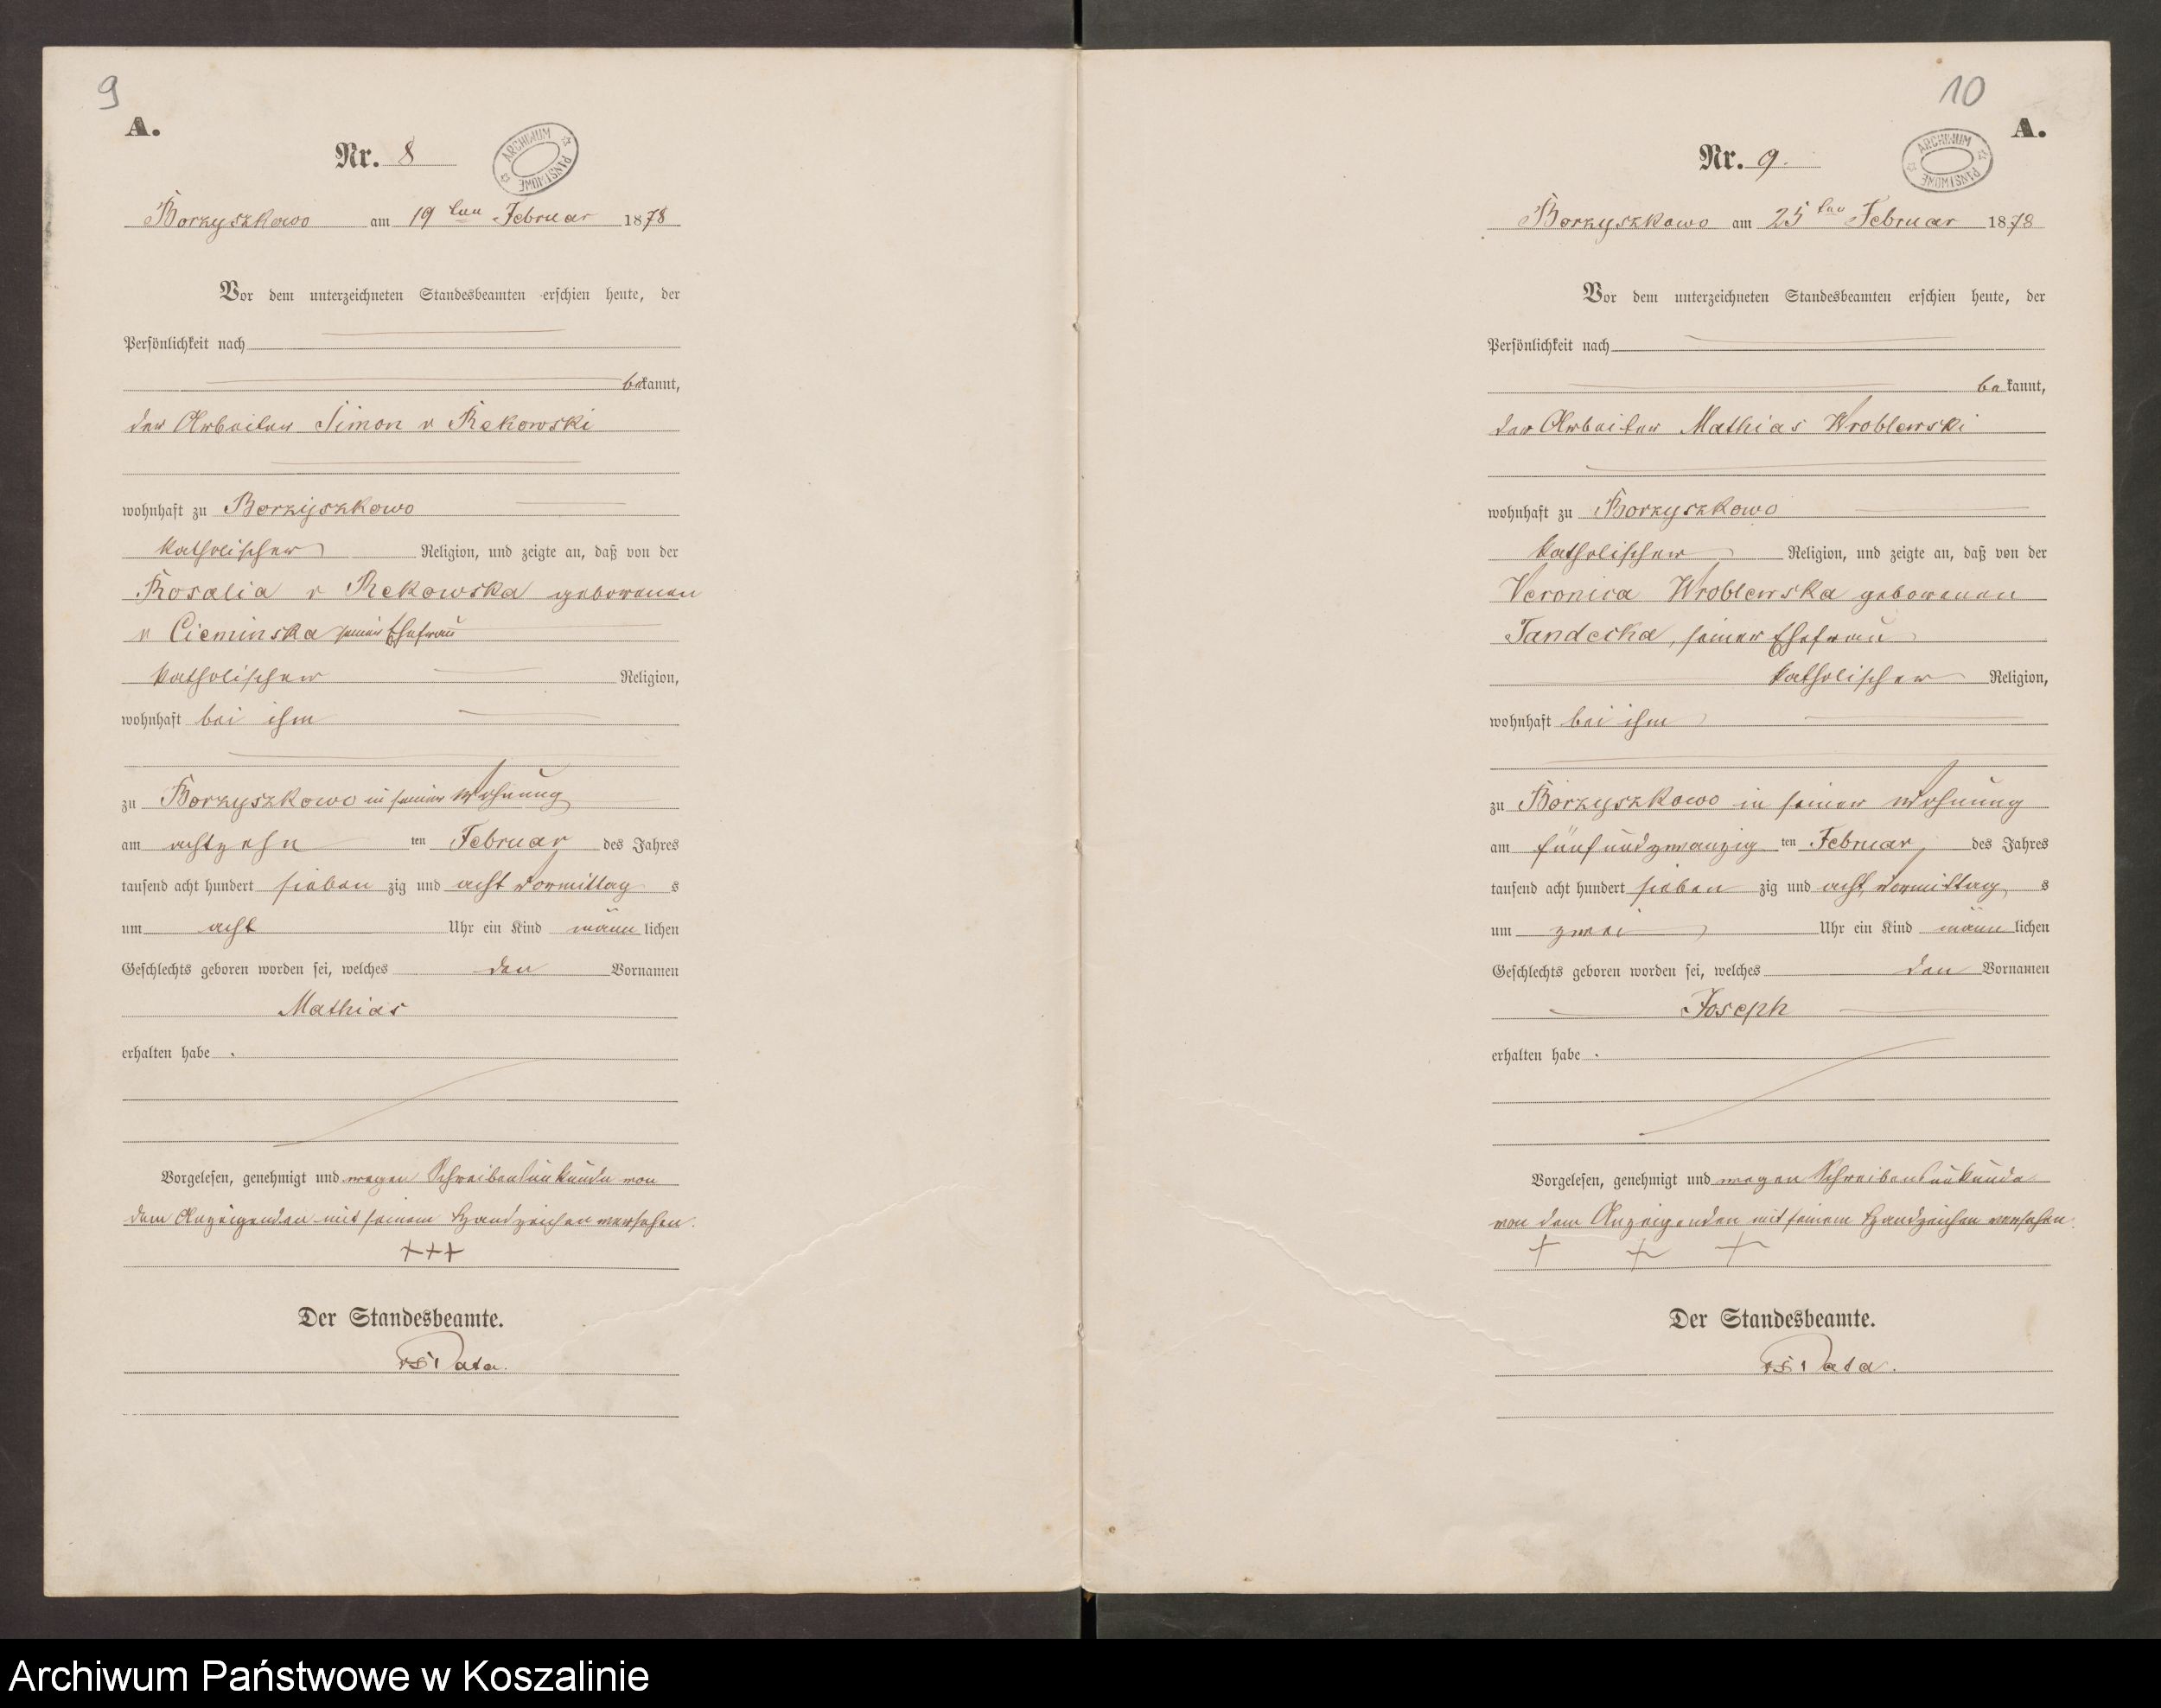 9
A.
Nr. 8
ARCHIWUM PAŃSTWOWE
Borzyszkowo am 19ten Februar 1878
Vor dem unterzeichneten Standesbeamten erschien heute, der
Persönlichkeit nach
bekannt,
der Arbeiter Simon v Rekowski
wohnhaft zu Borzyszkowo
katholischer Religion, und zeigte an, daß von der
Rosalia v Rekowska geborenen
v Cieminska seiner Ehefrau
katholischer Religion,
wohnhaft bei ihm
zu Borzyszkowo in seiner Wohnung
am achtzehn ten Februar des Jahres
tausend acht hundert sieben zig und acht Vormittag s
um acht Uhr ein Kind männ lichen
Geschlechts geboren worden sei, welches den Vornamen
Mathias
erhalten habe .
Vorgelesen, genehmigt und wegen Schreibensunkunde von
dem Anzeigenden mit seinem Handzeichen versehen.
+++
Der Standesbeamte.
10
A.
Nr. 9.
ARCHIWUM PAŃSTWOWE
Borzyszkowo am 25ten Februar 1878
Vor dem unterzeichneten Standesbeamten erschien heute, der
Persönlichkeit nach
be kannt,
der Arbeiter Mathias Wroblewski
wohnhaft zu Borzyszkowo
katholischer Religion, und zeigte an, daß von der
Veronica Wroblewska geborenen
Tandecka, seiner Ehefrau
katholischer Religion,
wohnhaft bei ihm
zu Borzyszkowo in seiner Wohnung
am fünfundzwanzig ten Februar des Jahres
tausend acht hundert sieben zig und acht, Vormittag s
um zwei Uhr ein Kind männ lichen
Geschlechts geboren worden sei, welches den Vornamen
Joseph
erhalten habe .
Vorgelesen, genehmigt und wegen Schreibensunkunde
von dem Anzeigenden mit seinem Handzeichen versehen.
+ + +
Der Standesbeamte.
Archiwum Państwowe w Koszalinie